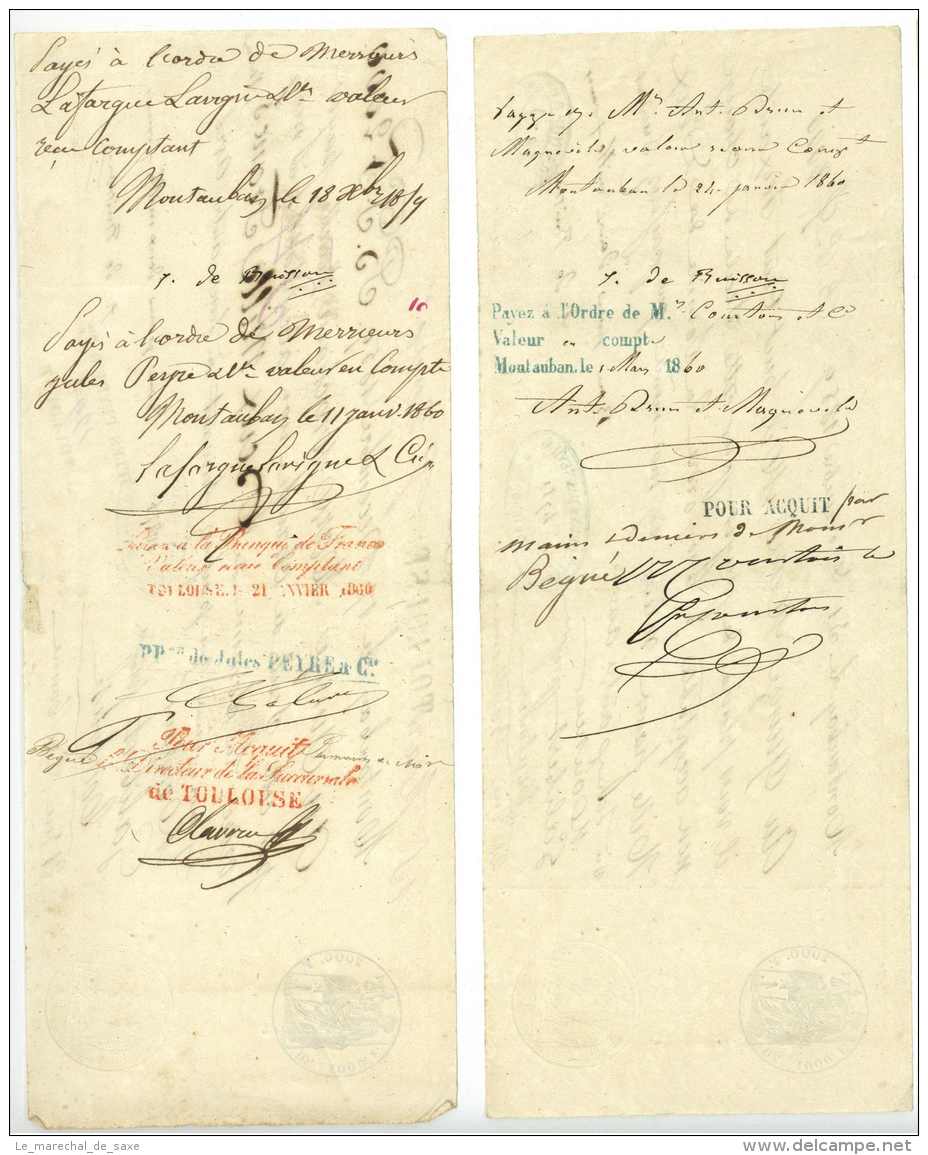 Payés à l'ordre de Messieurs
Lafargue Lavigne & Cie valeur
reçu comptant
Montauban le 18 Xbre 1859
J. de Buisson
10
Payés à l'ordre de Messieurs
Jules Peyre & Cie valeur en Compte
Montauban le 11 janv. 1860
Lafargue Lavigne & Cie
Payez à la Banque de France
Valeur reçu Comptant
TOULOUSE, le 21 JANVIER 1860
PPon de Jules PEYRE & Cie
Pour Acquit
Begué
Directeur de la Succursale
de TOULOUSE
Mr. Ant. Brun et
Magneville, valeur reçue Compt
Montauban le 24 janvier 1860
J. de Buisson
Payez à l'Ordre de M.rs Courtois et Ce
Valeur en compte
Montauban, le 1 Mars 1860
Ant. Brun et Magneville
POUR ACQUIT par
mains & deniers de Monsr
Begué
Courtois
Le_marechal_de_saxe
www.delcampe.net